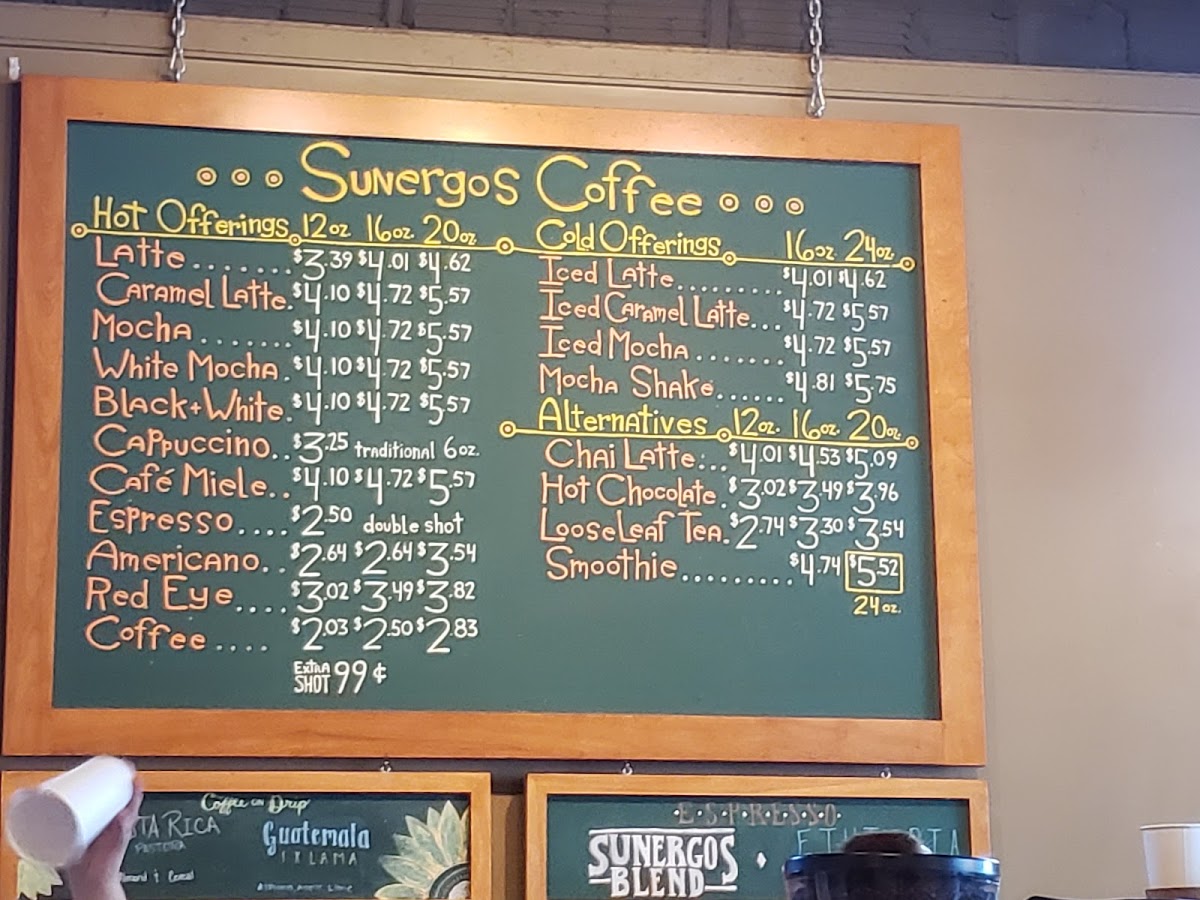 Sunergos Coffee
Hot Offerings 12oz 16oz. 20oz
Latte....... $3.39 $4.01 $4.62
Caramel Latte. $4.10 $4.72 $5.57
Mocha....... $4.10 $4.72 $5.57
White Mocha. $4.10 $4.72 $5.57
Black+White. $4.10 $4.72 $5.57
Cappuccino.. $3.25 traditional 6oz.
Café Miele.. $4.10 $4.72 $5.57
Espresso.... $2.50 double shot
Americano.. $2.64 $2.64 $3.54
Red Eye.... $3.02 $3.49 $3.82
Coffee.... $2.03 $2.50 $2.83
Extra Shot 99¢
Cold Offerings 16oz. 24oz.
Iced Latte......... $4.01 $4.62
Iced Caramel Latte... $4.72 $5.57
Iced Mocha....... $4.72 $5.57
Mocha Shake...... $4.81 $5.75
Alternatives 12oz. 16oz. 20oz.
Chai Latte:... $4.01 $4.53 $5.09
Hot Chocolate. $3.02 $3.49 $3.96
Loose Leaf Tea. $2.74 $3.30 $3.54
Smoothie......... $4.74 $5.52
24 oz.
Coffee on Drip
TA RICA
Guatemala
IXLAMA
E·S·P·R·E·S·S·O
SUNERGOS
BLEND